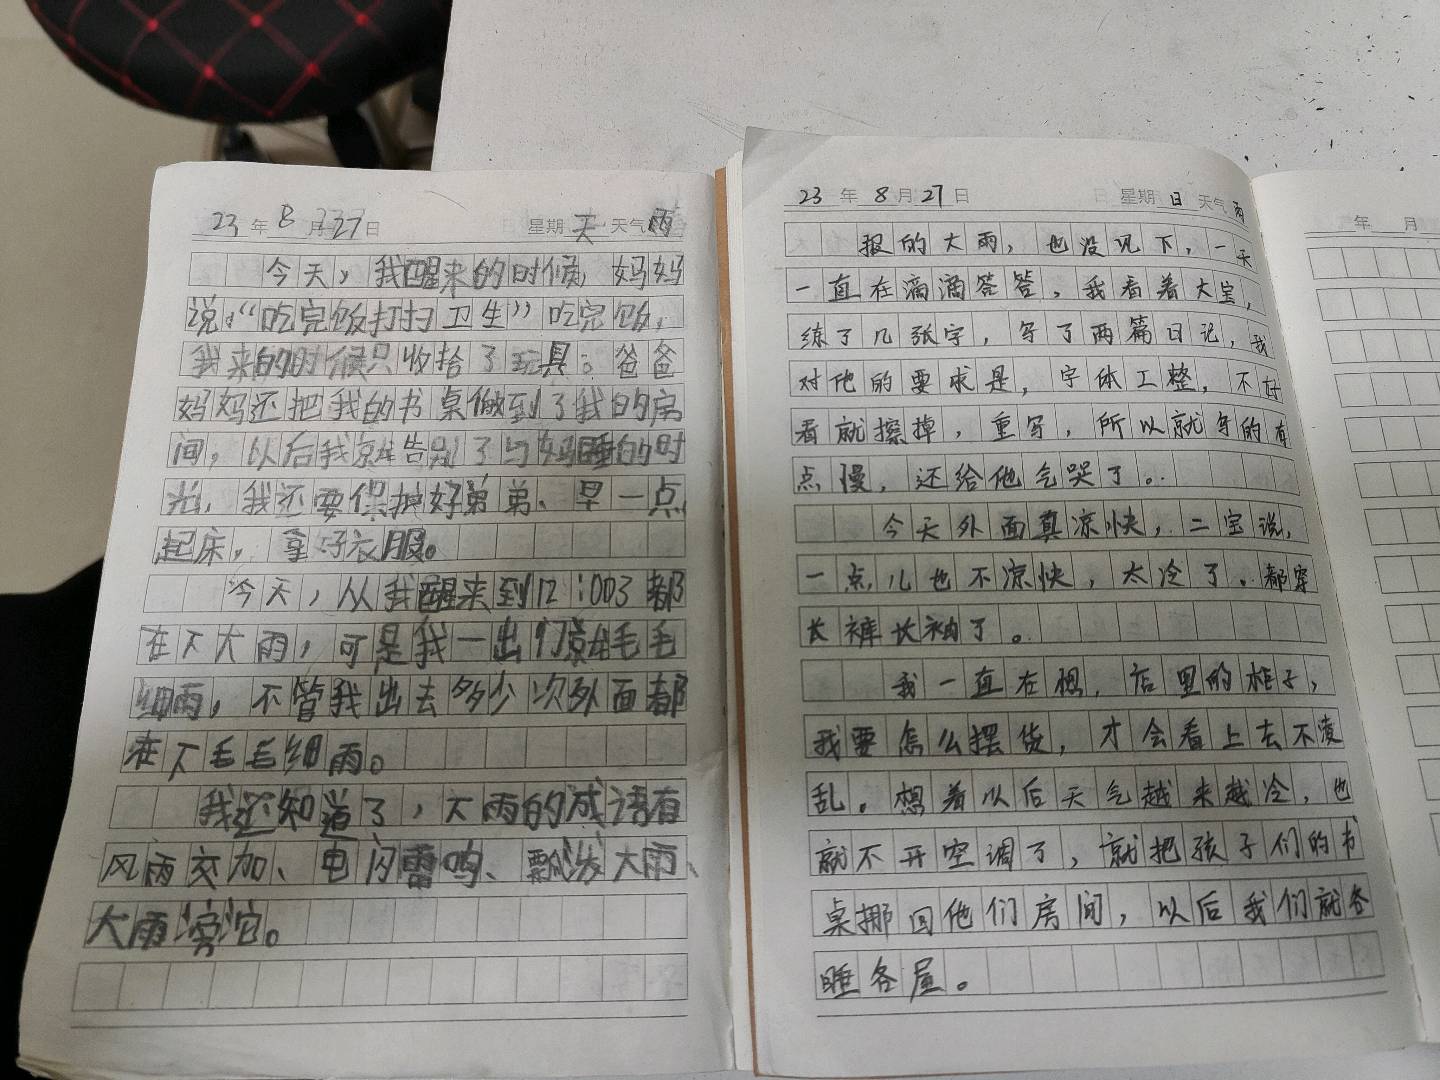 23年8月27日 星期天 天气雨
今天，我醒来的时候，妈妈
说：“吃完饭打扫卫生”吃完饭，
我来的时候只收拾了玩具。爸爸
妈妈还把我的书桌做到了我的房
间，以后我就告别了与妈睡的时
光，我还要保护好弟弟、早一点
起床，拿好衣服。
今天，从我醒来到12:003都
在下大雨，可是我一出们就毛毛
细雨，不管我出去多少次外面都
在下毛毛细雨。
我还知道了，大雨的成语有
风雨交加、电闪雷鸣、飘泼大雨、
大雨滂沱。
23年8月27日 星期日 天气雨
报的大雨，也没见下，一天
一直在滴滴答答，我看着大宝，
练了几张字，写了两篇日记，我
对他的要求是，字体工整，不好
看就擦掉，重写，所以就写的有
点慢，还给他气哭了。
今天外面真凉快，二宝说，
一点儿也不凉快，太冷了。都穿
长裤长袖了。
我一直在想，店里的柜子，
我要怎么摆货，才会看上去不凌
乱。想着以后天气越来越冷，也
就不开空调了，就把孩子们的书
桌挪回他们房间，以后我们就各
睡各屋。
年 月